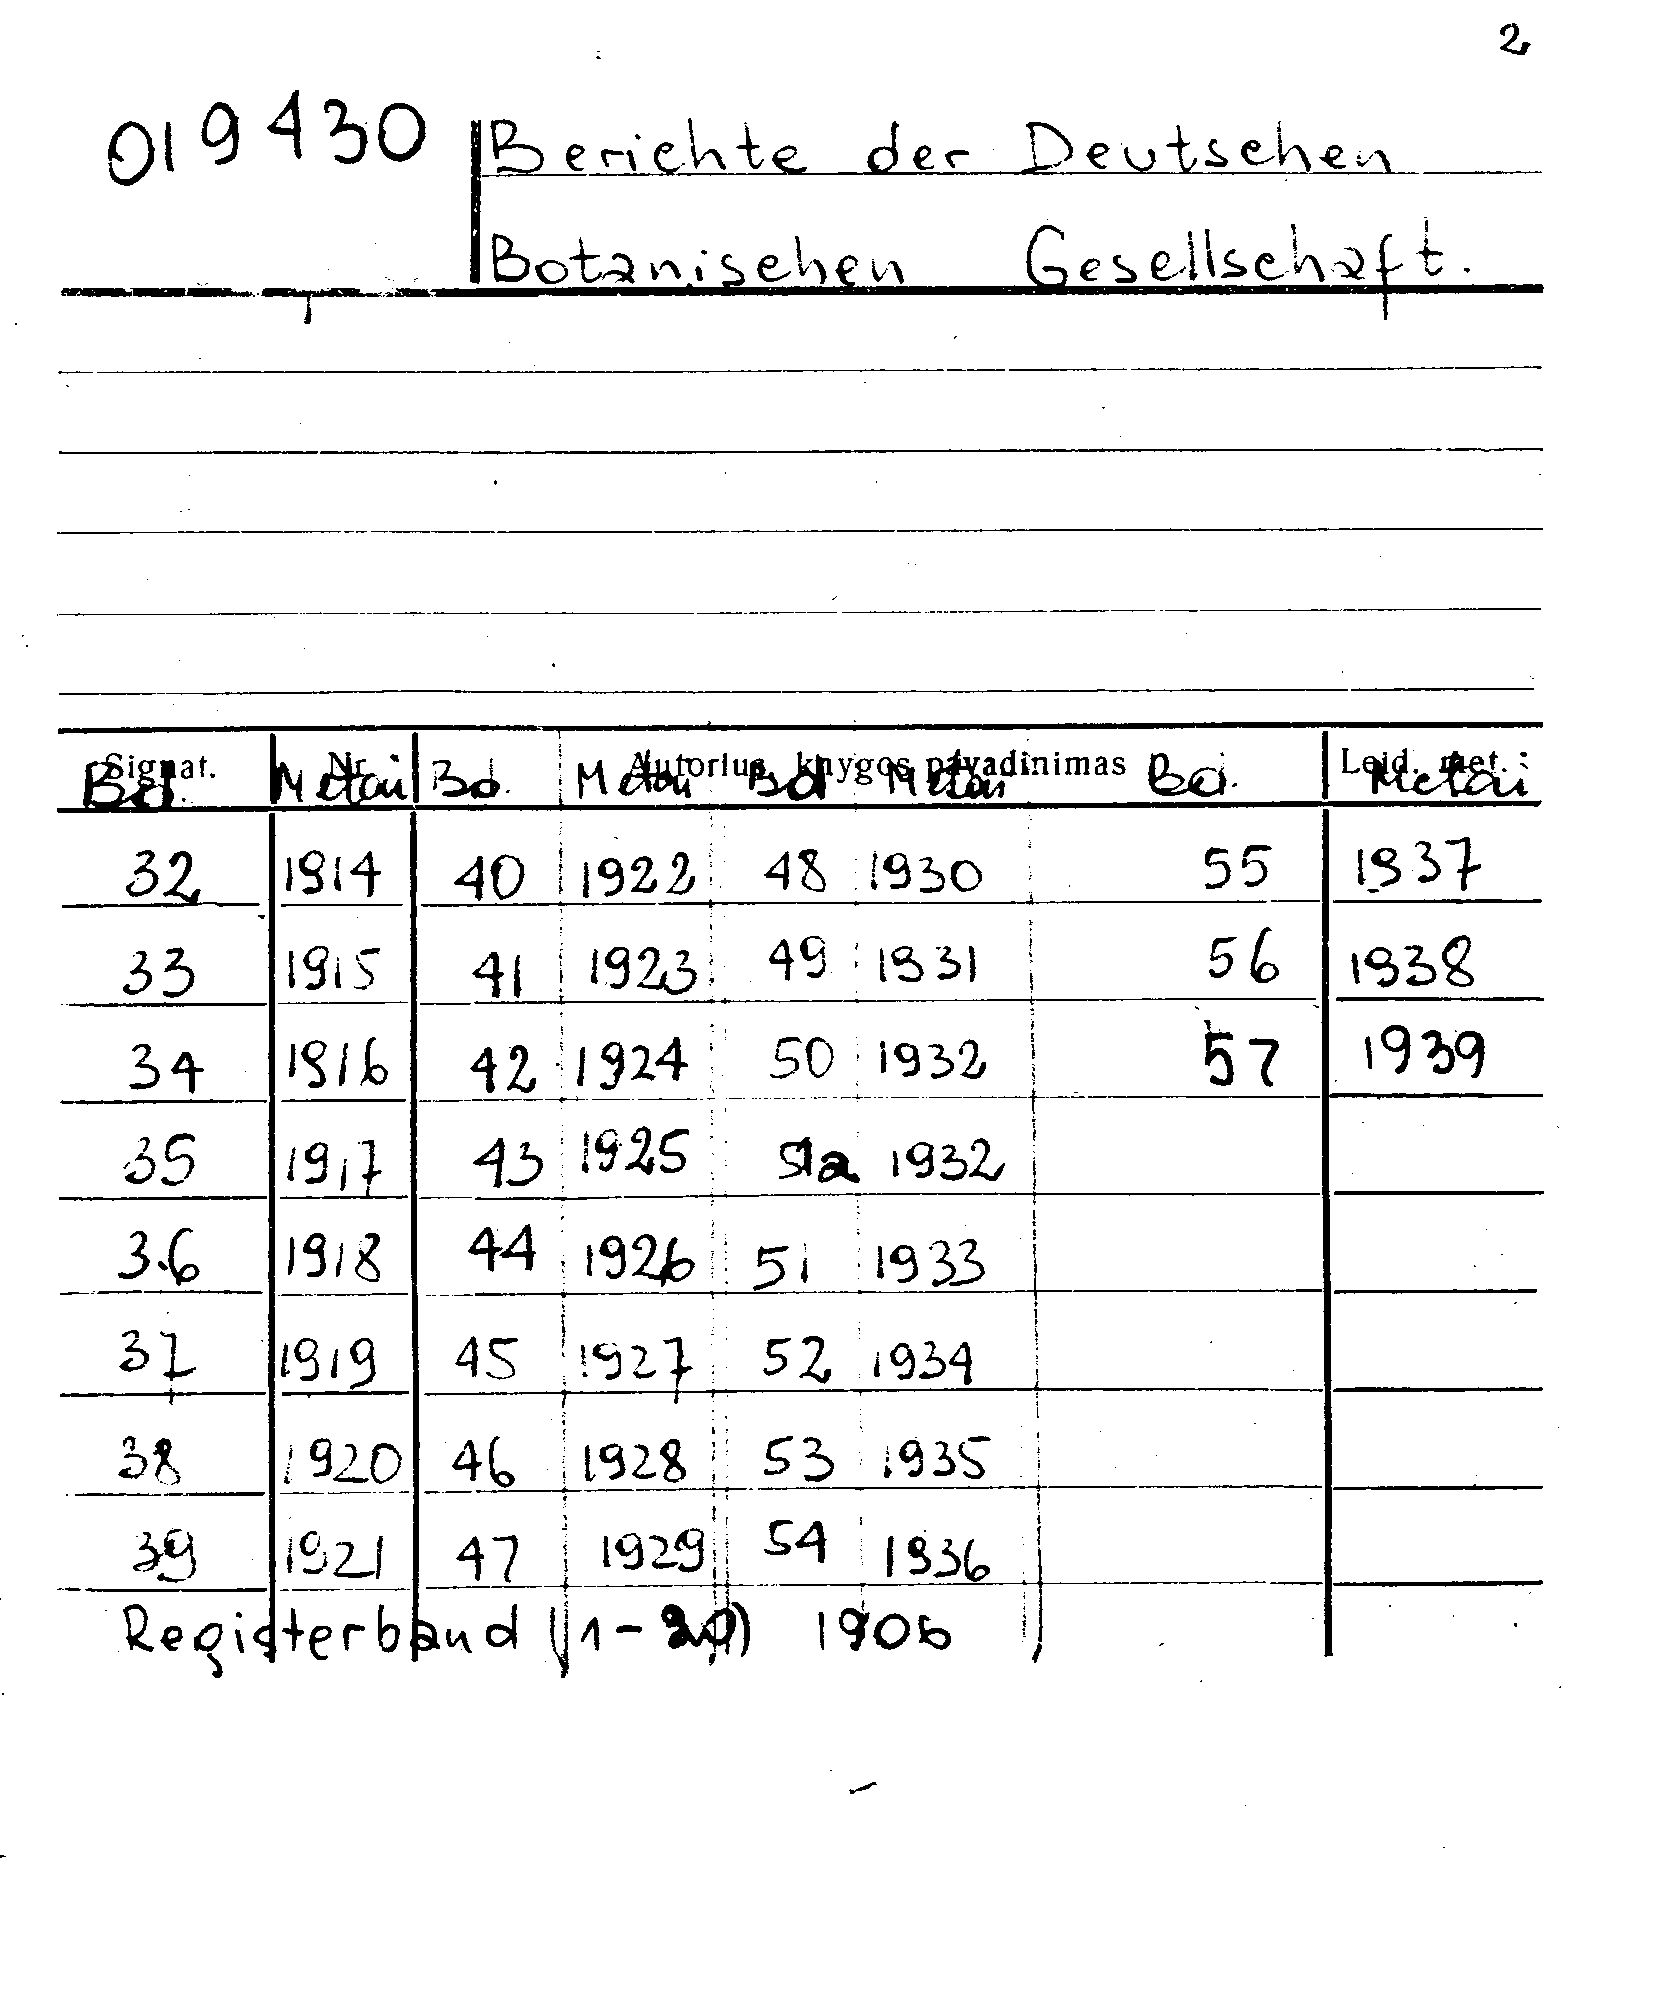 2
019430 Berichte der Deutschen
Botanischen Gesellschaft.
Signat. Nr. Autorius, knygos pavadinimas Leid. met.
Bd. Metai Bd. Metai Bd Metai Bd. Metai
32 1914 40 1922 48 1930 55 1937
33 1915 41 1923 49 1931 56 1938
34 1916 42 1924 50 1932 57 1939
35 1917 43 1925 51a 1932
36 1918 44 1926 51 1933
37 1919 45 1927 52 1934
38 1920 46 1928 53 1935
39 1921 47 1929 54 1936
Registerband (1-20) 1906